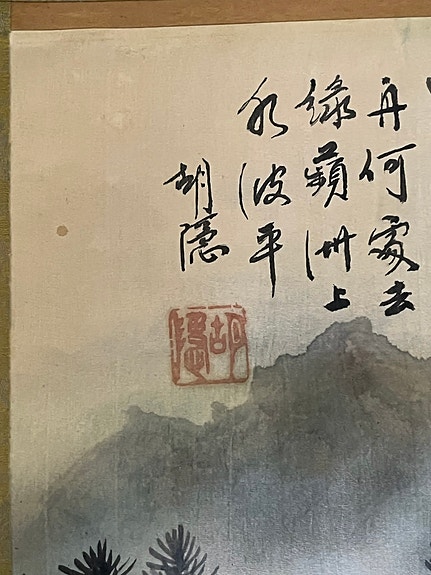 舟何處去
綠蘋洲上
水波平
胡隱
胡隱